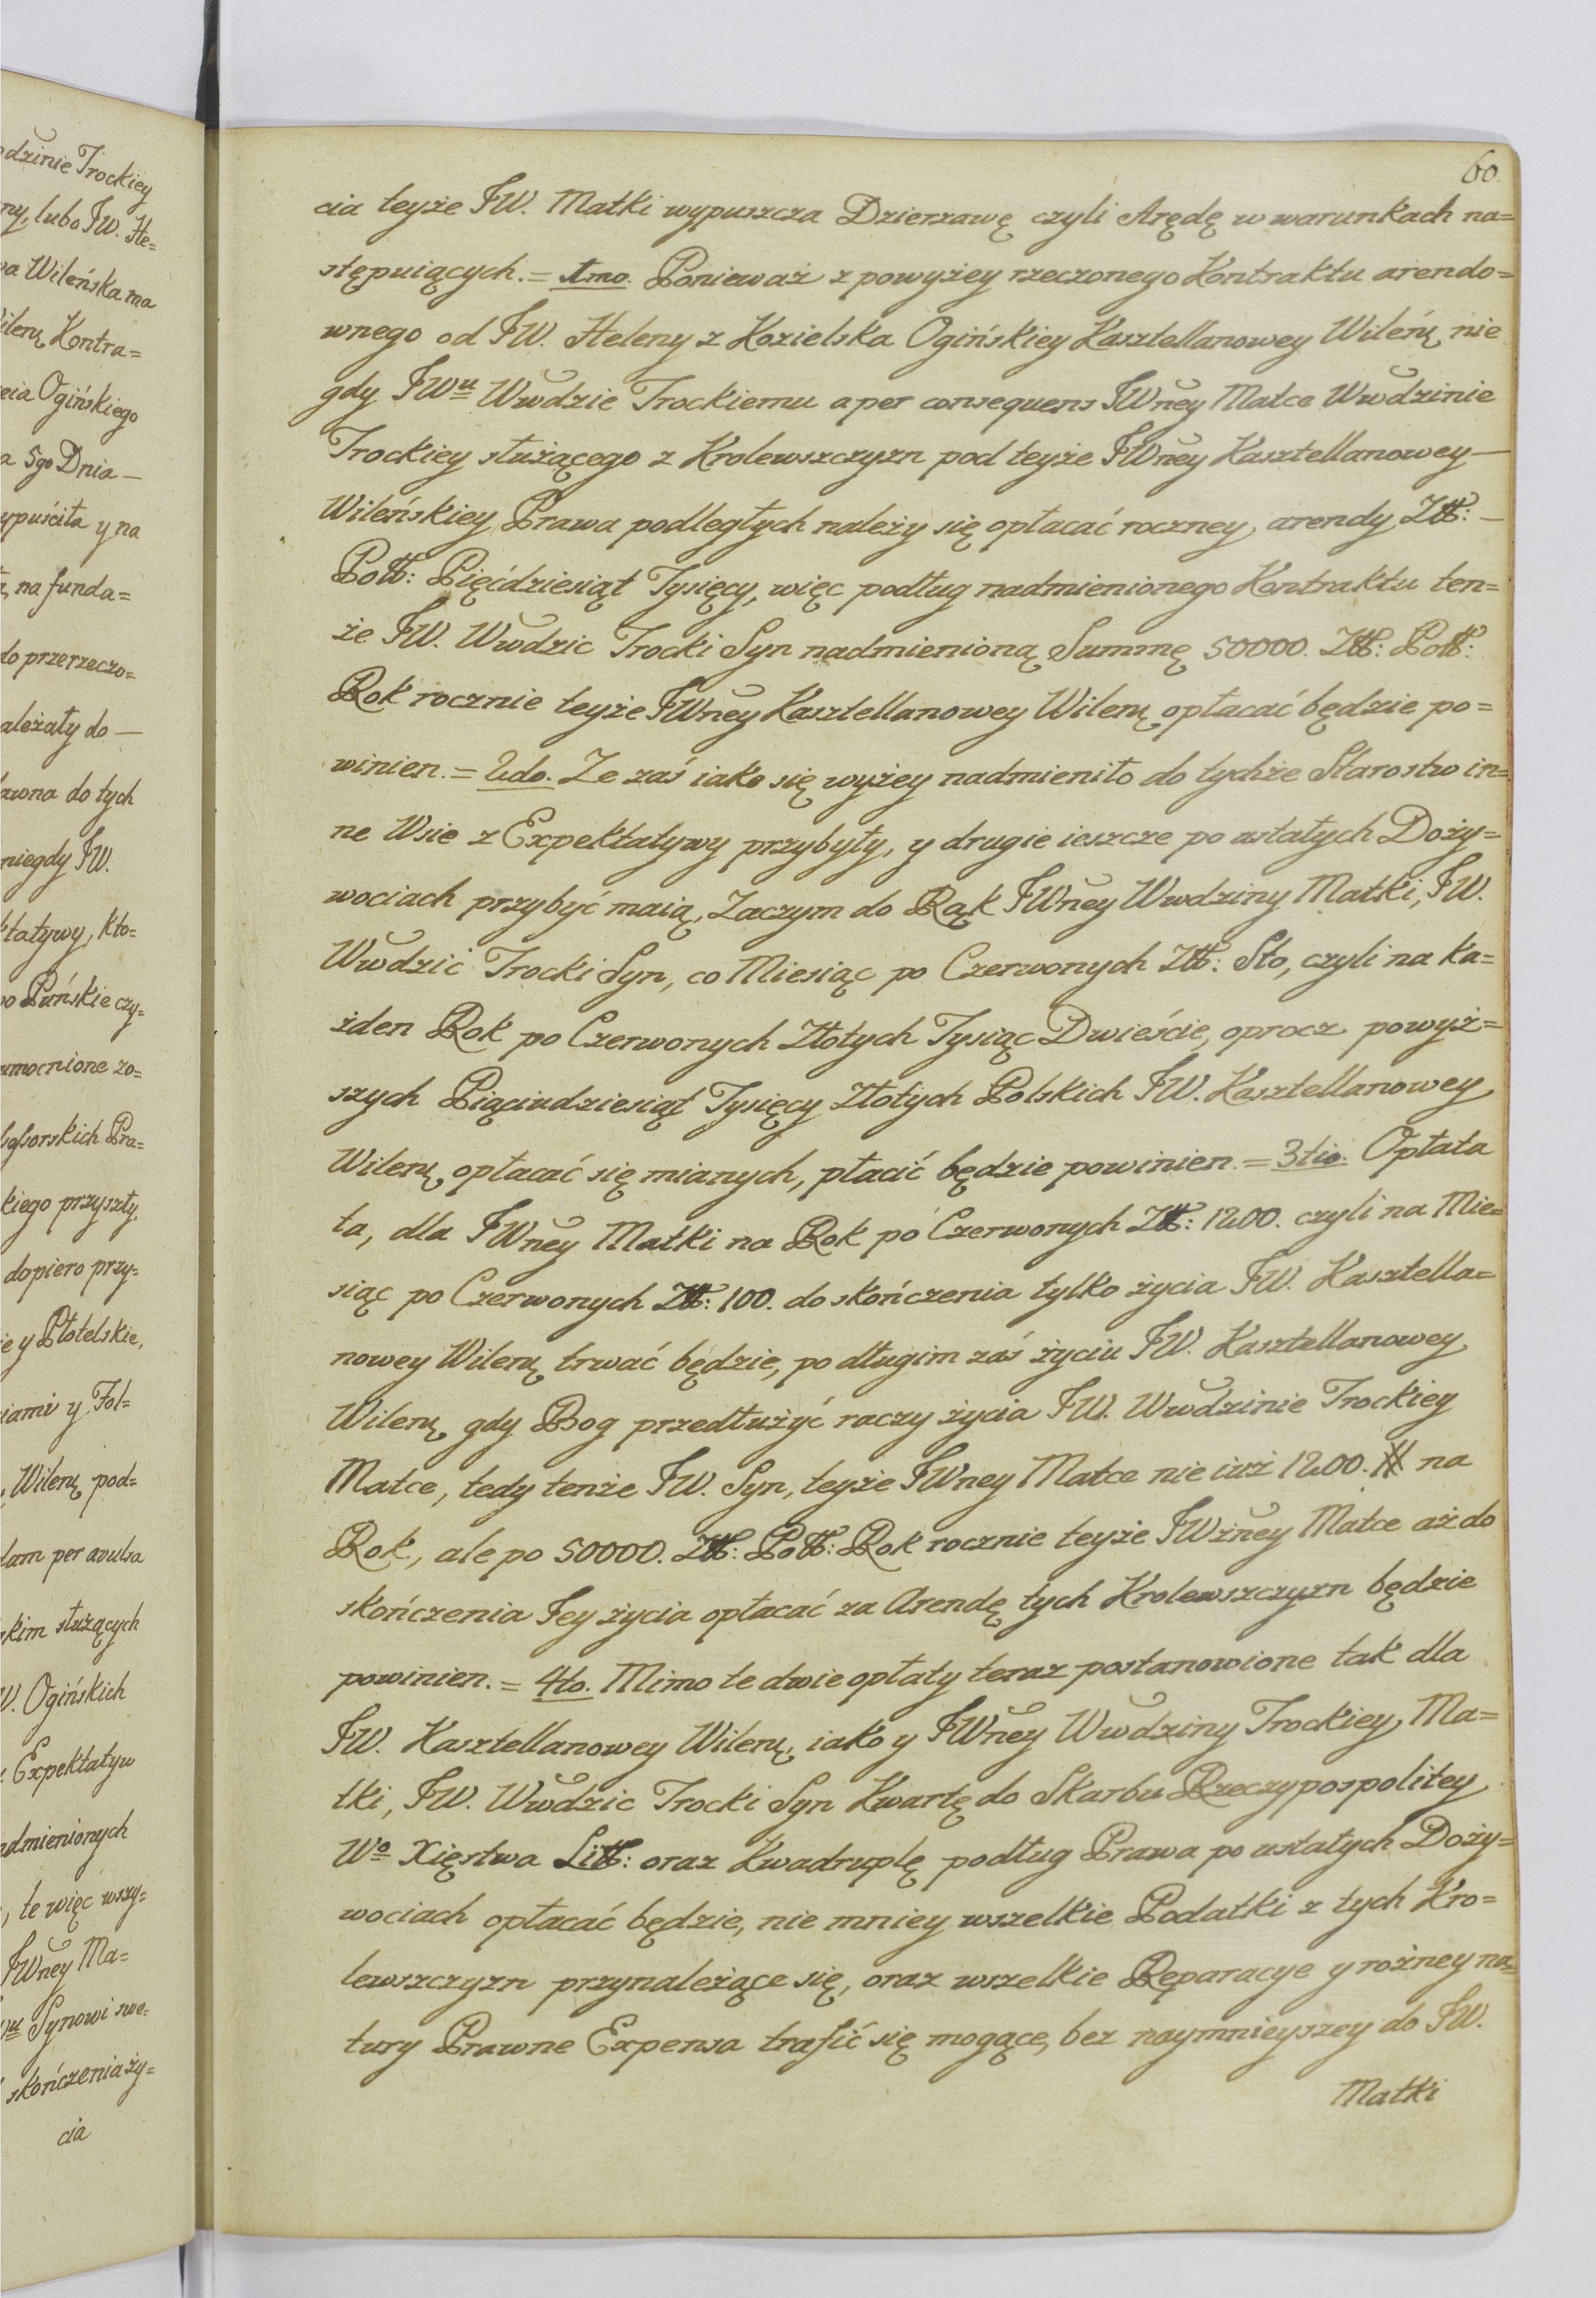 odzinie Trockiey
ny, lubo JW. He=
wa Wileńska ma
Wilenų Kontra=
ecia Ogińskiego
a 5go Dnia —
ypuściła y na
na funda=
do przerzeczo=
ależały do —
awna do tych
niegdy JW.
ktatywy, kto=
Puńskie czy=
umocnione zo=
sessorskich Pra=
kiego przyszły,
dopiero przy=
ie y Płotelskie,
ciami y Fol=
, Wilenų pod=
dam per avulsa
kim służących
W. Ogińskich
z Expektatyw
admienionych
, te więc wszy=
JWney Ma=
Synowi swe=
skończenia ży=
cia
60.
cia teyże JW. Matki wypuszcza Dzierzawę czyli Arędę w warunkach na=
stępuiących. = 1mo. Ponieważ z powyżey rzeczonego Kontraktu arendo=
wnego od JW. Heleny z Kozielska Ogińskiey Kasztellanowey Wileńų nie
gdy JWu Wwdzie Trockiemu a per consequens JWney Matce Wwdzinie
Trockiey służącego z Krolewszczyzn pod teyże JWney Kasztellanowey —
Wileńskiey Prawa podległych należy się opłacać roczney arendy Złł: —
Poll: Pięćdziesiąt Tysięcy, więc podług nadmienionego Kontraktu ten=
że JW. Wwdzic Trocki Syn nadmienioną Summę 50000. Złł: Poll:
Rok rocznie teyże JWney Kasztellanowey Wilenų opłacać będzie po=
winien. = 2do. Ze zaś iako się wyżey nadmieniło do tychże Starostw in=
ne Wsie z Expektatywy przybyły, y drugie ieszcze po ustałych Doży=
wociach przybyć maią, Zaczym do Rąk JWney Wwdziny Matki, JW.
Wwdzic Trocki Syn, co Miesiąc po Czerwonych Złł: Sto, czyli na ka=
żden Rok po Czerwonych Złotych Tysiąc Dwieście, oprocz powyż=
szych Pięciudziesiąt Tysięcy Złotych Polskich JW. Kasztellanowey
Wilenų opłacać się mianych, płacić będzie powinien. = 3tio. Opłata
ta, dla JWney Matki na Rok po Czerwonych Złł: 1200. czyli na Mie=
siąc po Czerwonych Złł: 100. do skończenia tylko życia JW. Kasztella=
nowey Wilenų trwać będzie, po długim zaś życiu JW. Kasztellanowey
Wilenų gdy Bog przedłużyć raczy życia JW. Wwdzinie Trockiey
Matce, tedy tenże JW. Syn, teyże JWney Matce nie iuż 1200. # na
Rok, ale po 50000. Złł: Poll: Rok rocznie teyże JWżney Matce aż do
skończenia Jey życia opłacać za Arendę tych Krolewszczyzn będzie
powinien. = 4to. Mimo te dwie opłaty teraz postanowione tak dla
JW. Kasztellanowey Wilenų, iako y JWney Wwdziny Trockiey Ma=
tki, JW. Wwdzic Trocki Syn Kwartę do Skarbu Rzeczypospolitey
Wo Xięstwa Litt: oraz Kwadruplę podług Prawa po ustałych Doży=
wociach opłacać będzie, nie mniey wszelkie Podatki z tych Kro=
lewszczyzn przynależące się, oraz wszelkie Reparacye y rożney na=
tury Prawne Expensa trafić się mogące, bez naymnieyszey do JW.
Matki